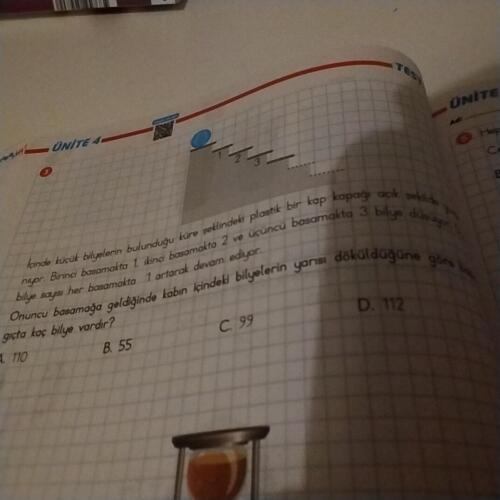 ÜNİTE 4
TES
ÜNİTE
3
1 2 3
İçinde küçük bilyelerin bulunduğu küre şeklindeki plastik bir kap kapağı açık şekilde
nıyor. Birinci basamakta 1, ikinci basamakta 2 ve üçüncü basamakta 3 bilye
bilye sayısı her basamakta 1 artarak devam ediyor.
Onuncu basamağa geldiğinde kabın içindeki bilyelerin yarısı döküldüğüne göre
gıçta kaç bilye vardır?
A. 110
B. 55
C. 99
D. 112